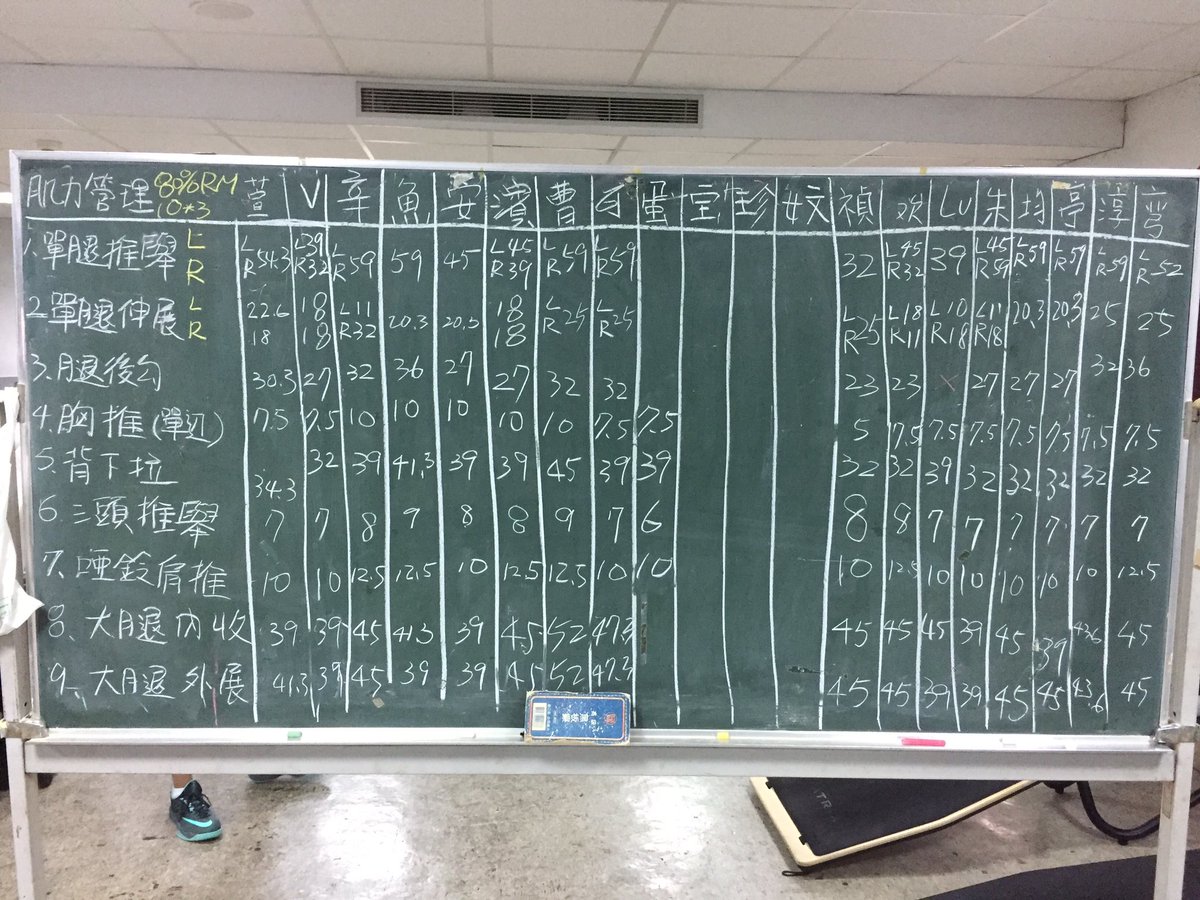 肌力管理 80%RM 10*3 萱 V 辛 魚 安 濱 曹 可 蛋 宝 珍 妏 禎 欢 LU 朱 均 亭 淳 彎
1.單腿推舉 L R L R 54.3 L39 R32 L R 59 59 45 L45 R39 L R 59 L R 59 32 L45 R32 39 L45 R59 L R 59 L R 59 L R 59 L R 52
2.單腿伸展 L R 22.6 18 18 18 L11 R32 20.3 20.5 18 18 L R 25 L R 25 L R 25 L18 R11 L10 R18 L11 R18 20.3 20.3 25 25
3.腿後勾 30.3 27 32 36 27 27 32 32 23 23 × 27 27 27 32 36
4.胸推(單边) 7.5 7.5 10 10 10 10 10 7.5 7.5 5 7.5 7.5 7.5 7.5 7.5 7.5 7.5
5.背下拉 34.3 32 39 41.3 39 39 45 39 39 32 32 39 32 32 32 32 32
6.三頭推舉 7 7 8 9 8 8 9 7 6 8 8 7 7 7 7 7 7
7.啞鈴肩推 10 10 12.5 12.5 10 12.5 12.5 10 10 10 12.5 10 10 10 10 10 12.5
8.大腿內收 39 39 45 41.3 39 45 52 47.3 45 45 45 39 45 39 43.6 45
9.大腿外展 41.3 39 45 39 39 45 52 47.3 45 45 39 39 45 45 43.6 45
TR